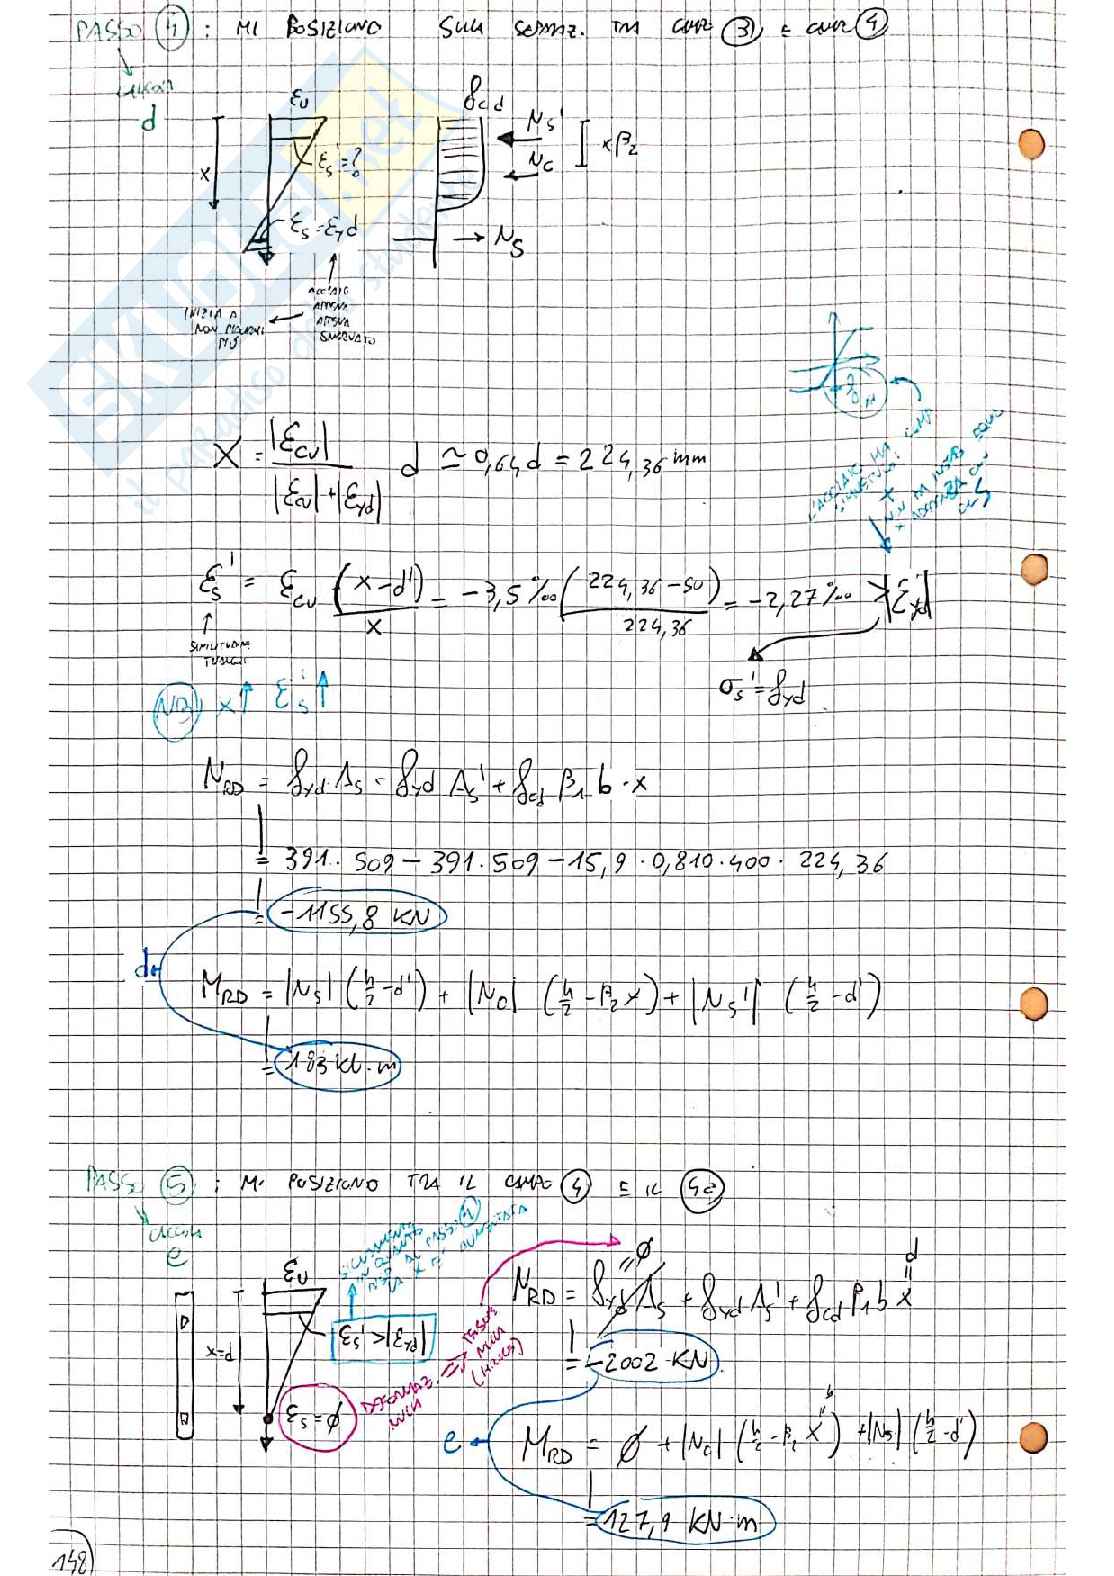 PASSO 4 : MI POSIZIONO SULLA SEPARAZ. TRA CAMPO 3 E CAMPO 4
d
εu
fcd
Ns'
x β2
Nc
x
εs' = ?
εs = εyd
Ns
ACCIAIO
APPENA
APPENA
SNERVATO
INIZIA A
X = |εcu| / (|εcu| + |εyd|) d ≃ 0,64 d = 224,36 mm
εs' = εcu ( (x-d') / x ) = -3,5‰ ( (224,36-50) / 224,36 ) = -2,27‰ > |εyd|
SIMILITUDINE
TRIANGOLI
σs' = fyd
NB x↑ εs'↑
NRD = fyd As - fyd As' + fcd β1 b · x
= 391 · 509 - 391 · 509 - 15,9 · 0,810 · 400 · 224,36
= -1155,8 KN
d
MRD = |Ns| (h/2 - d') + |Nc| (h/2 - β2 x) + |Ns'| (h/2 - d')
= 183 kN·m
PASSO 5 : MI POSIZIONO TRA IL CAMPO 4 E IL 4a
e
SICURAMENTE
IN QUANTO
RISP. AL PASSO 4
LA X È AUMENTATA
εu
x=d
εs' < |εyd|
εs = ø
DEFORMAZ.
NULLA
=ø
d
NRD = fyd As + fyd As' + fcd β1 b x
= -2002 KN
e
MRD = ø + |Nc| (h/2 - β2 x) + |Ns| (h/2 - d')
= 127,9 KN·m
148
SKUOLA.net